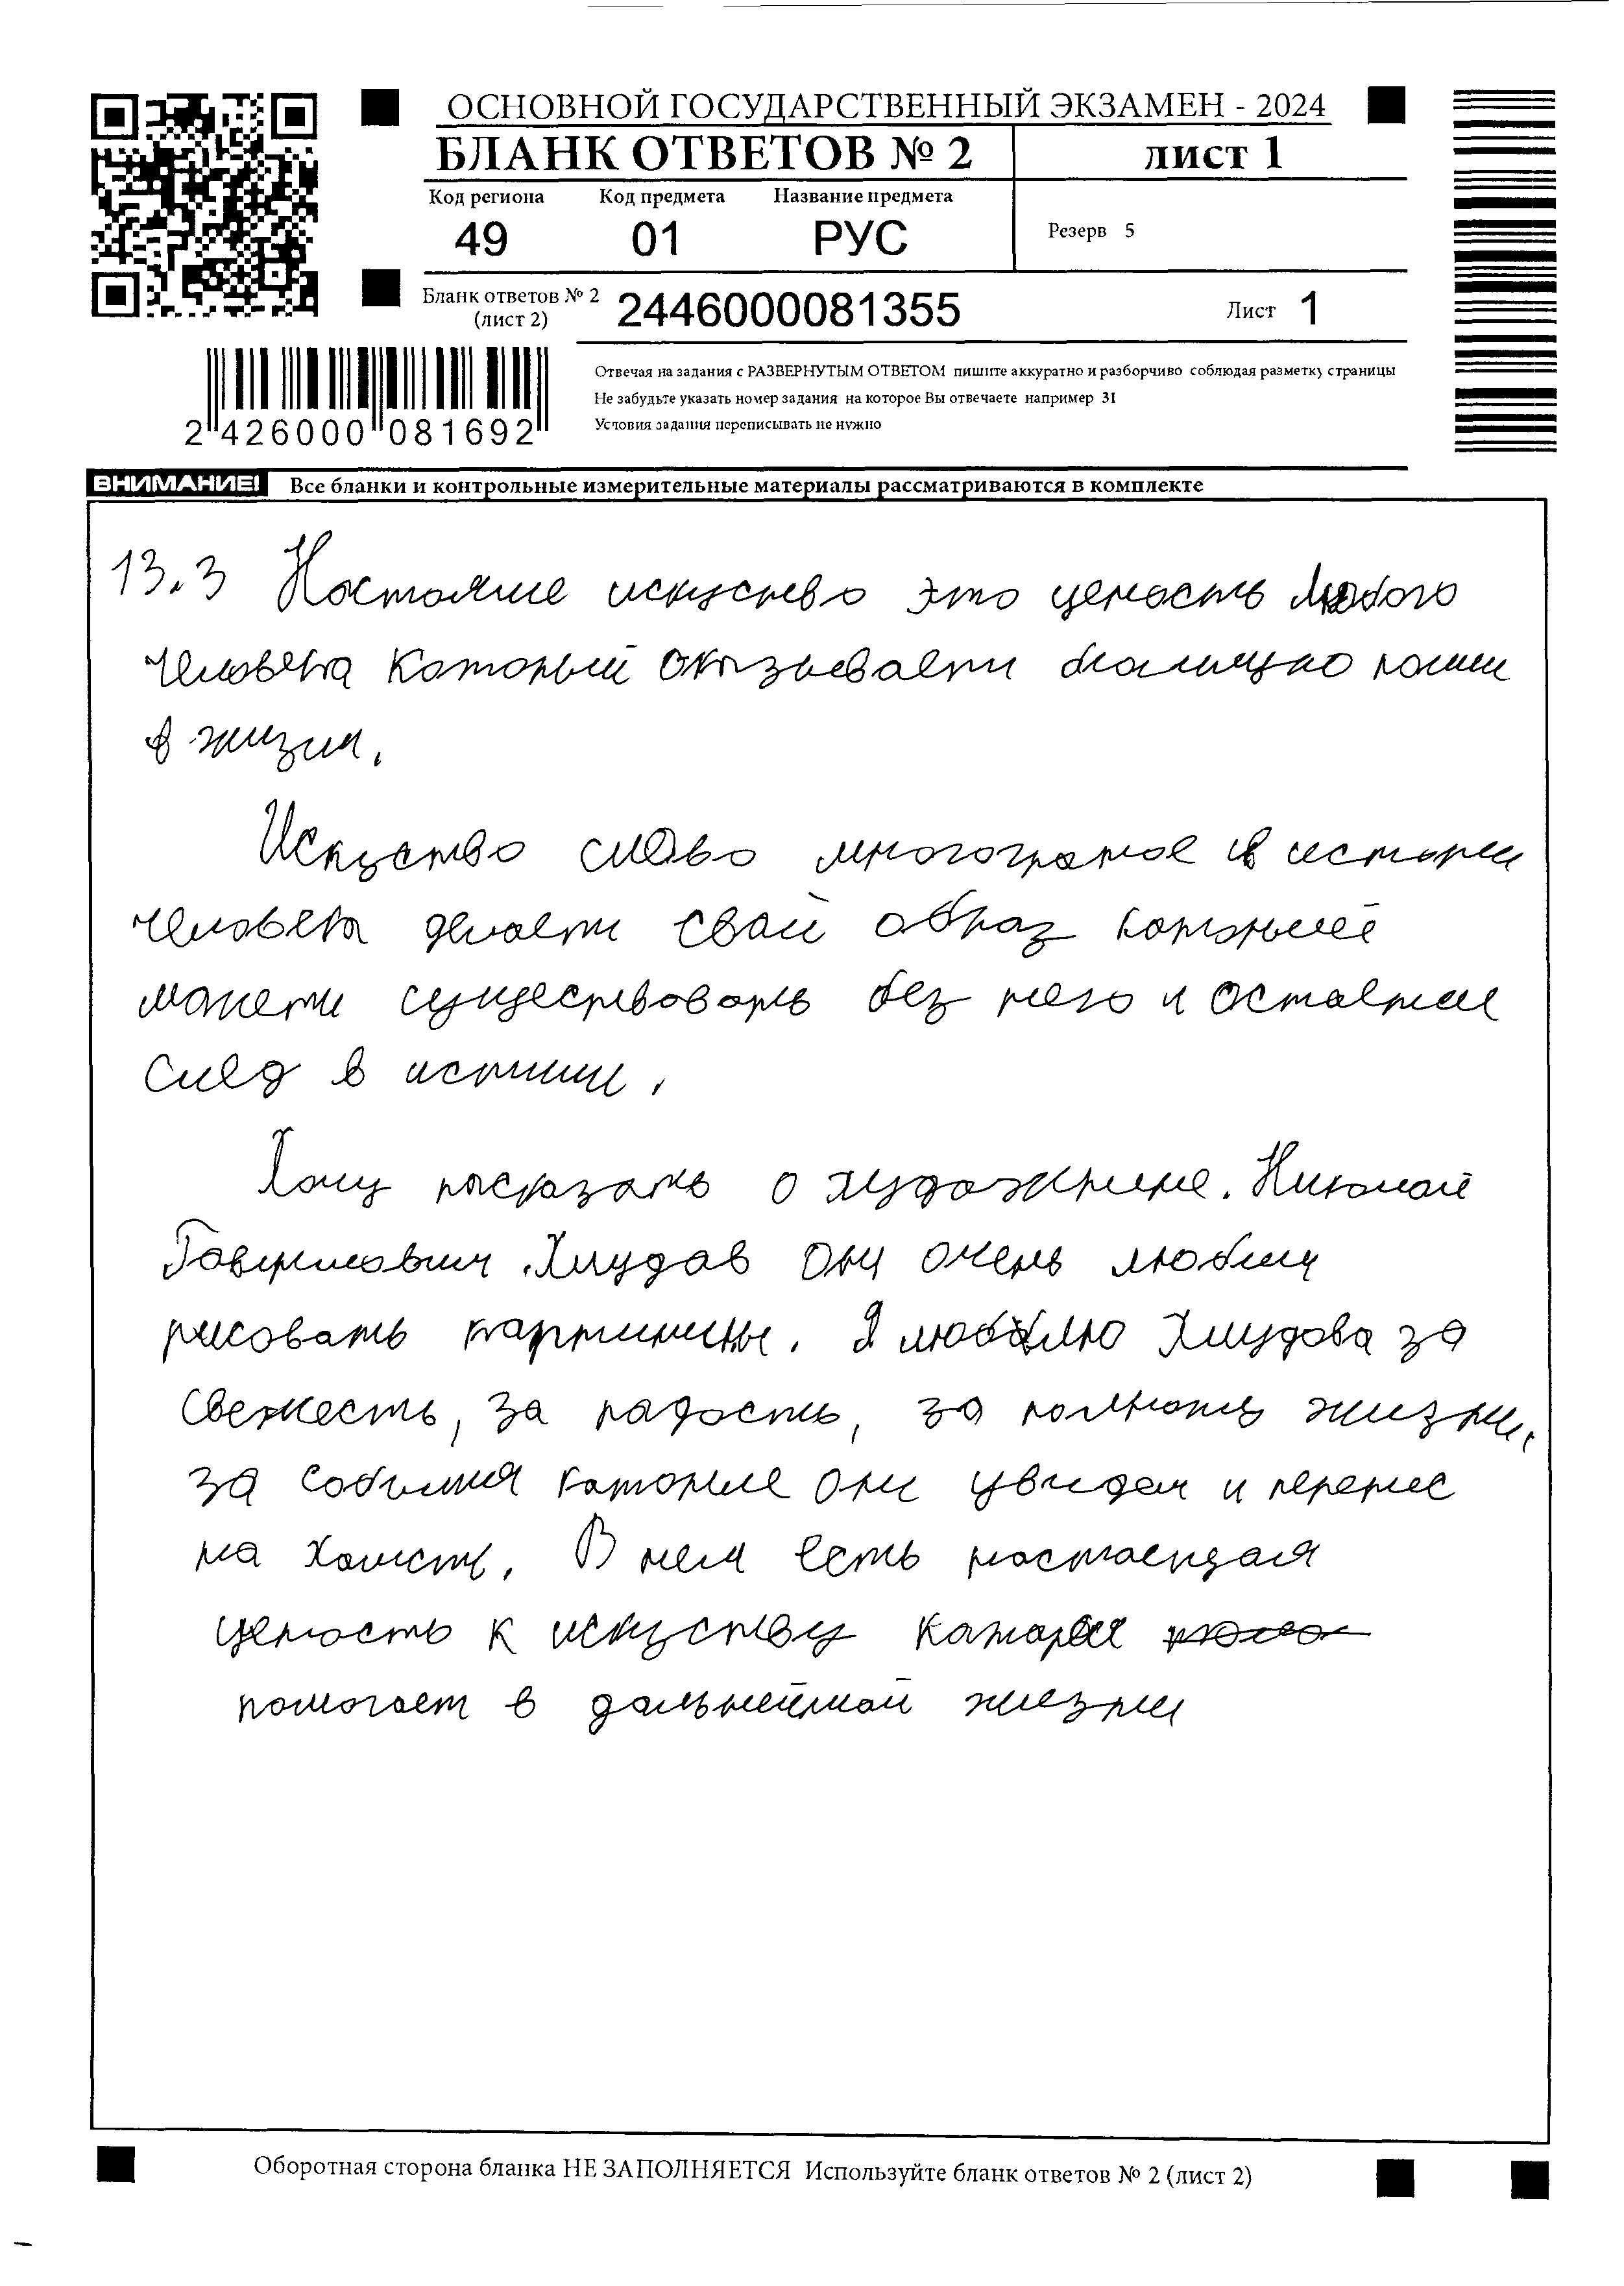 ОСНОВНОЙ ГОСУДАРСТВЕННЫЙ ЭКЗАМЕН - 2024
БЛАНК ОТВЕТОВ № 2
лист 1
Код региона Код предмета Название предмета
49 01 РУС
Резерв 5
Бланк ответов № 2
(лист 2)
2446000081355
Лист 1
2 426000 081692
Отвечая на задания с РАЗВЕРНУТЫМ ОТВЕТОМ пишите аккуратно и разборчиво соблюдая разметку страницы
Не забудьте указать номер задания на которое Вы отвечаете например 31
Условия задания переписывать не нужно
ВНИМАНИЕ! Все бланки и контрольные измерительные материалы рассматриваются в комплекте
13.3 Настояше искуство это ценость любого
человека который оказывает
в жизни.
Искуство слово многогратое в истори
человека делает свой образ которыеё
может существовать без него и остаетсе
след в
Хочу расказать о художнике. Николай
Гаврилович Хлудав он очень любил
рисовать картинины. Я люоблю Хлудова за
свежесть, за радость, за полноту жизни,
за события которые он увидел и перенес
на холсты. В нем есть
ценость к искуству катарая
помогает в дальнейшай жизни
Оборотная сторона бланка НЕ ЗАПОЛНЯЕТСЯ Используйте бланк ответов № 2 (лист 2)